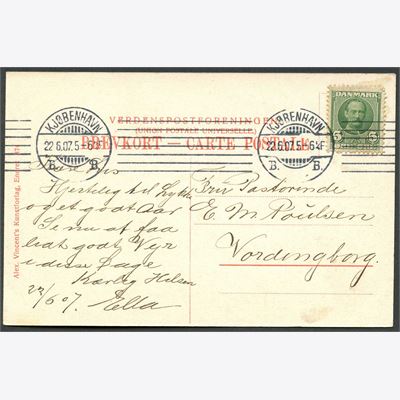 VERDENSPOSTFORENINGEN
(UNION POSTALE UNIVERSELLE)
BREVKORT — CARTE POSTALE
KJØBENHAVN
22.6.07.5-6E
B. B.
KJØBENHAVN
22.6.07.5-6E
B. B.
DANMARK
5 5
Alex. Vincent's Kunstforlag, Eneret
Kære
Hjertelig til Lykke
og et godt Aar
Se nu at faa
lidt godt Vejr
i disse Dage
Kærlig Hilsen
22/6 07. Ella
Fru Pastorinde
E. M. Poulsen
Vordingborg.